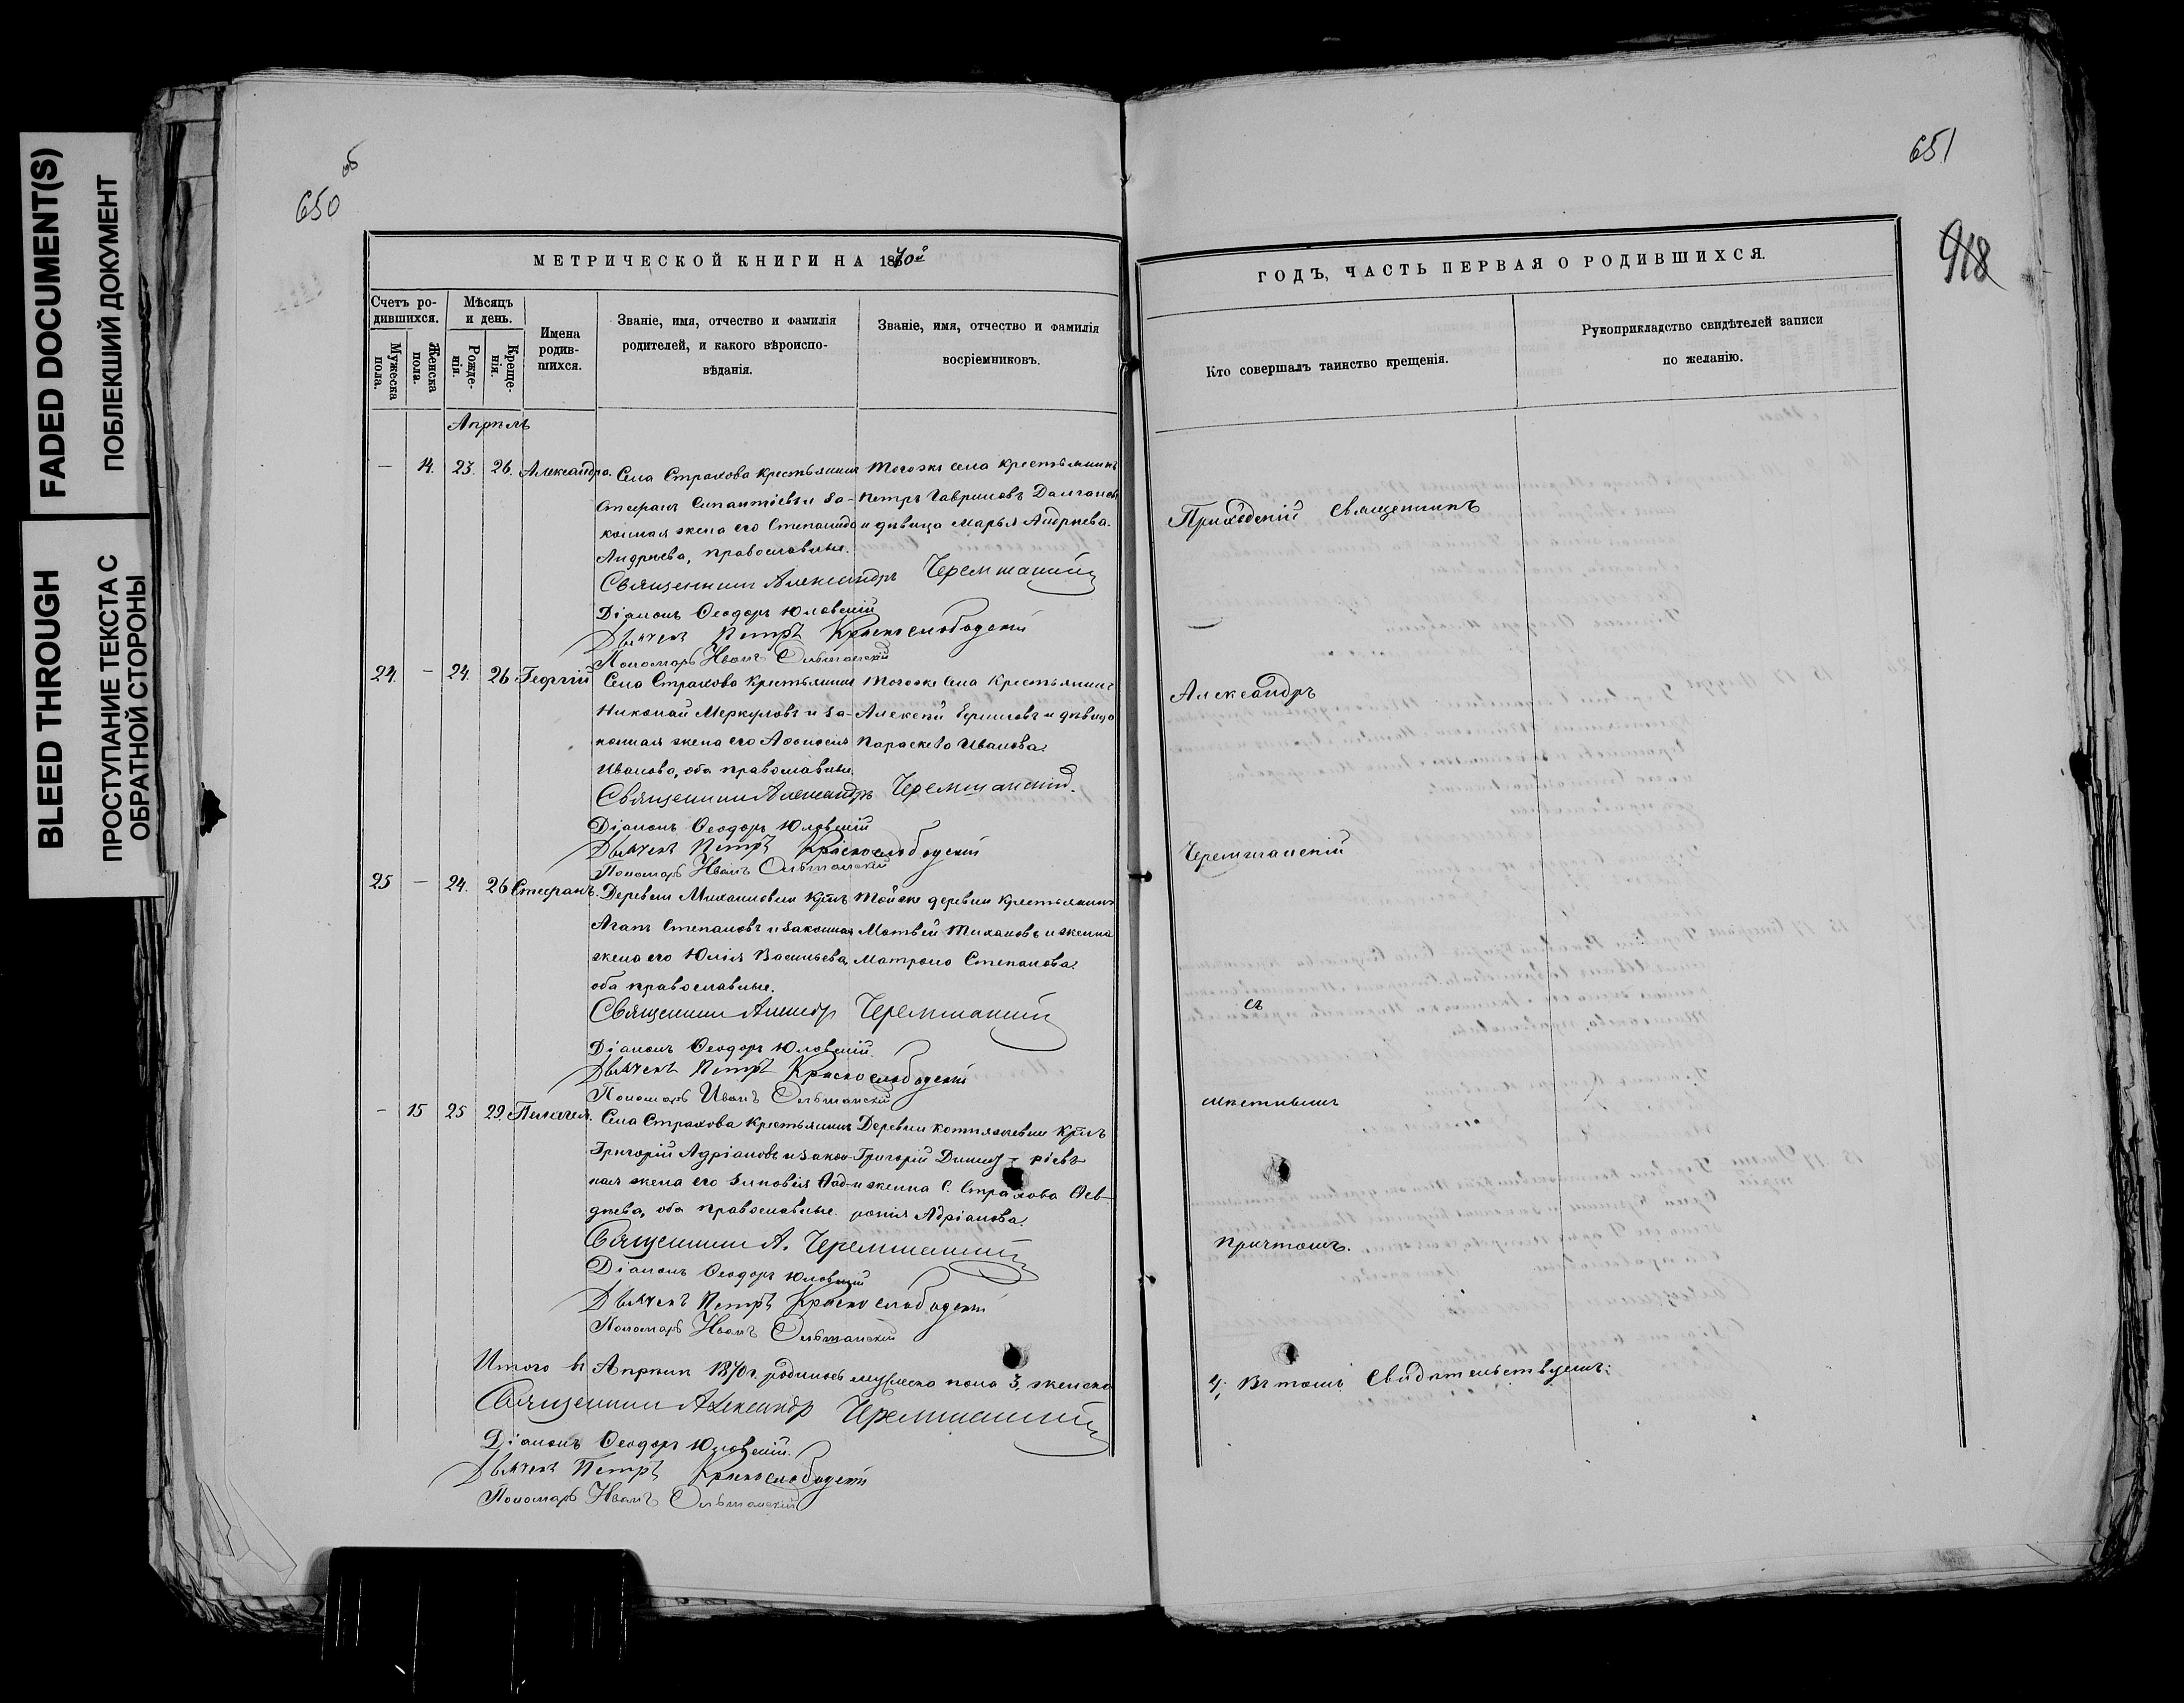 FADED DOCUMENT(S)
ПОБЛЕКШИЙ ДОКУМЕНТ
BLEED THROUGH
ПРОСТУПАНИЕ ТЕКСТА С
ОБРАТНОЙ СТОРОНЫ
650 об
МЕТРИЧЕСКОЙ КНИГИ НА 1870й
Счетъ ро-
дившихся.
Мужеска
пола.
Женска
пола.
Мѣсяцъ
и день.
Рожде-
нія.
Креще-
нія.
Имена
родив-
шихся.
Званіе, имя, отчество и фамилія
родителей, и какого вѣроиспо-
вѣданія.
Званіе, имя, отчество и фамилія
восріемниковъ.
Апрѣль
— 14. 23. 26. Александра. Села Страхова крестьянинъ Тогоже села крестьянинъ
Стефанъ и за- Петръ Гавриловъ
конная жена его Степанида и дѣвица Марья Андреева.
Андреева, православные.
Священникъ Александръ Черемшанскій
Діаконъ Ѳеодоръ Юловскій
Дьячекъ Петръ Краснослободскій
Пономарь Иванъ Ольшанскій
24. — 24. 26 Георгій Села Страхова крестьянинъ Тогоже села крестьянинъ
Николай Меркуловъ и за- Алексѣй Ермиловъ и дѣвица
конная жена его Афонасія Параскева Иванова.
Иванова, оба православные.
Священникъ Александръ Черемшанскій.
Діаконъ Ѳеодоръ Юловскій
Дьячекъ Петръ Краснослободскій
Пономарь Иванъ Ольшанскій
25 — 24. 26 Стефанъ. Деревни Михайловки крнъ Тойже деревни крестьянинъ
Агапъ Степановъ и законная Матвѣй Тихановъ и женка
жена его Юлія Васильева, Матрона Степанова.
оба православные.
Священникъ Александр Черемшанскій
Діаконъ Ѳеодоръ Юловскій.
Дьячекъ Петръ Краснослободскій
Пономарь Иванъ Ольшанскій
— 15 25 29. Пелагея. Села Страхова крестьянинъ Деревни крнъ
Григорій Адріановъ и закон- Григорій Димит ріевъ
ная жена его Зиновія Фад- и женка С. Страхова Фев-
дѣева, оба православные. ронія Адріанова.
Священникъ А. Черемшанскій
Діаконъ Ѳеодоръ Юловскій
Дьячекъ Петръ Краснослободскій
Пономарь Иванъ Ольшанскій
Итого въ Апрѣлѣ 1870 г. родилось мужеска пола 3, женска
Священникъ Александр Черемшанскій
Діаконъ Ѳеодоръ Юловскій.
Дьячекъ Петръ Краснослободскій
Пономарь Иванъ Ольшанскій
651
918
ГОДЪ, ЧАСТЬ ПЕРВАЯ О РОДИВШИХСЯ.
Кто совершалъ таинство крещенія.
Рукоприкладство свидѣтелей записи
по желанію.
Приходскій Священникъ
Александръ
Черемшанскій
съ
причтомъ.
4; въ томъ свидѣтельствуемъ: